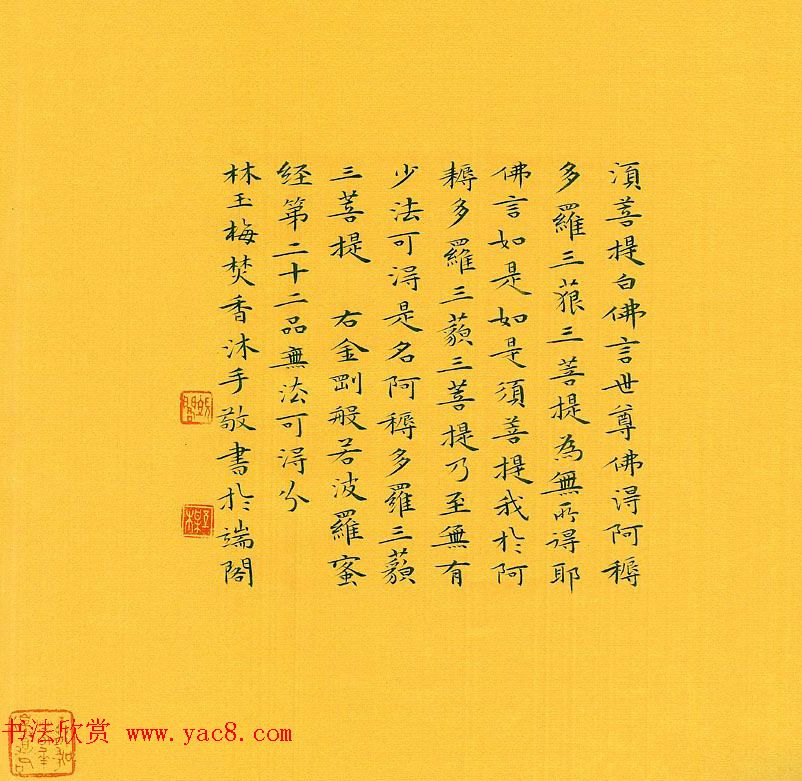 湏菩提白佛言世尊佛得阿耨
多羅三藐三菩提為無所得耶
佛言如是如是須菩提我於阿
耨多羅三藐三菩提乃至無有
少法可得是名阿耨多羅三藐
三菩提 右金剛般若波羅蜜
经第二十二品無法可得分
林玉梅焚香沐手敬書於端閣
书法欣赏 www.yac8.com